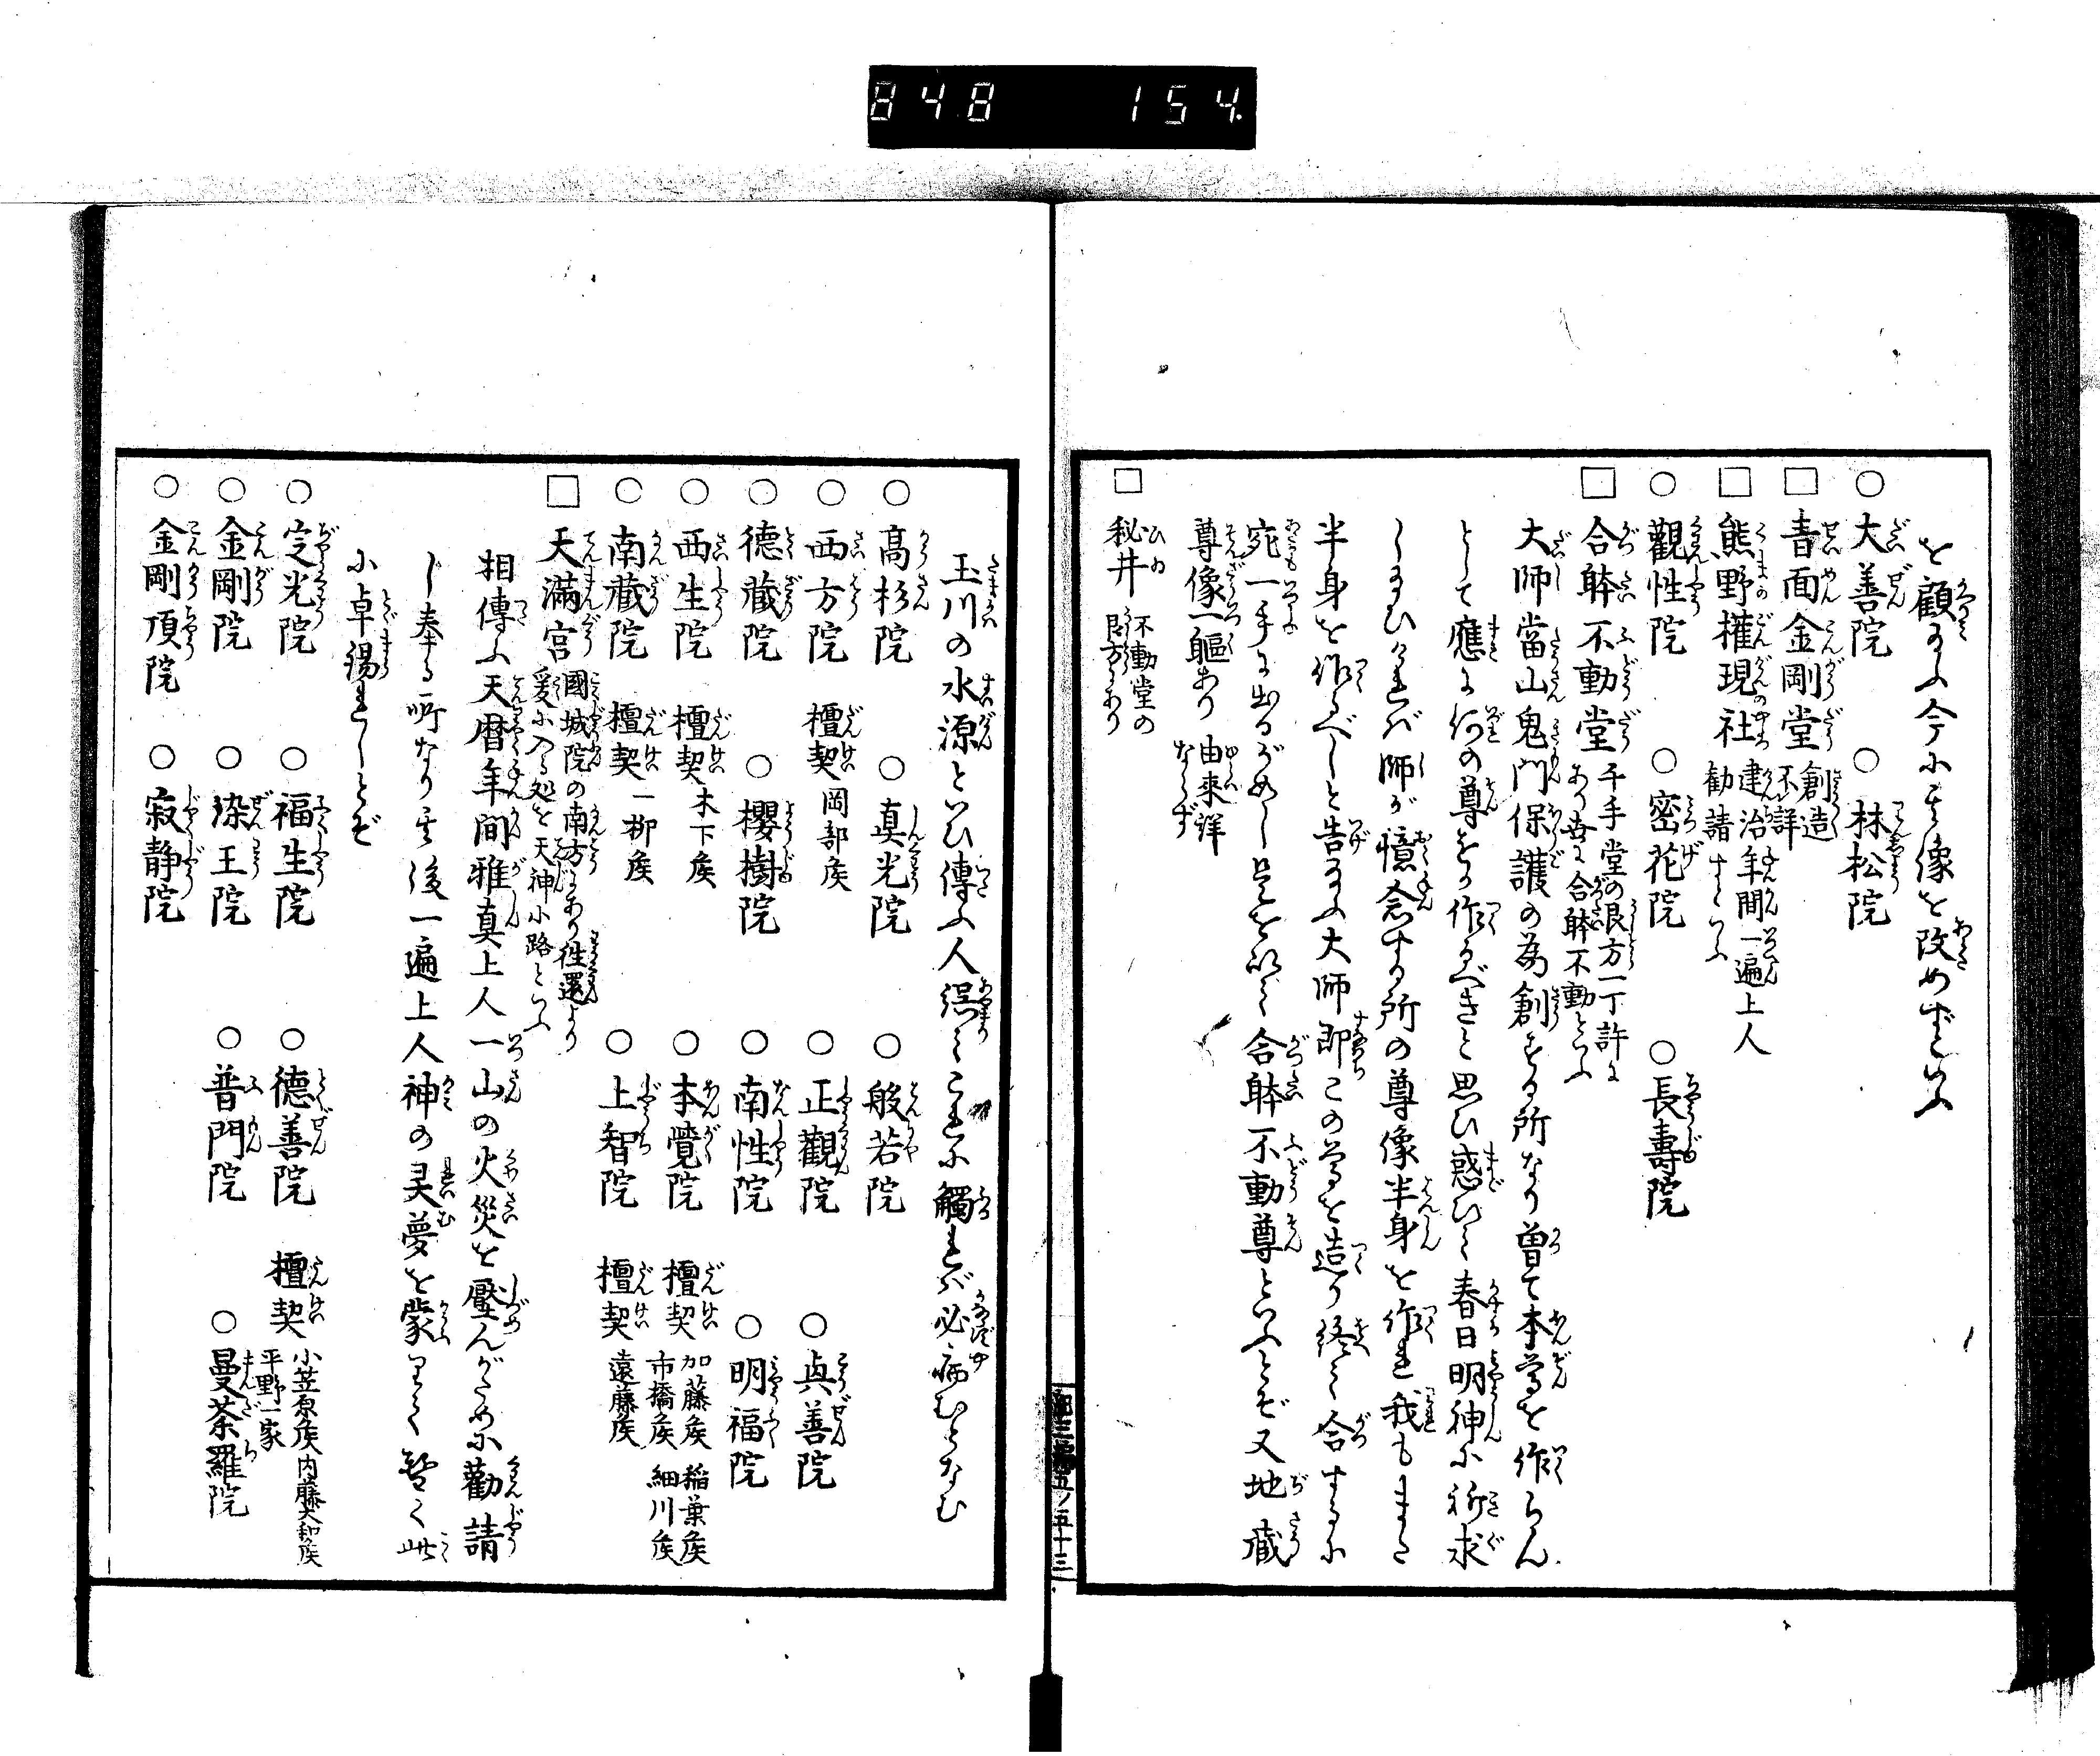 848 154.
を顧みたまふ今に其像を改めずといふ
○大善院 ○林松院
□青面金剛堂 創造不詳
□熊野権現社 建治年間一遍上人勧請すといふ
○觀性院 ○密花院 ○長壽院
□合躰不動堂 千手堂の艮方一丁許にあり世に合躰不動といふ
大師當山鬼門保護の為創する所なり曽て本尊を作らん
として應に何の尊をか作るべきと思ひ惑ひて春日明神に祈求
したまひければ師が憶念する所の尊像半身を作れ我もまた
半身を作るべしと告たまふ大師即この尊を造り終て合するに
宛一手に出るがめし是を以て合躰不動尊といふとぞ又地蔵
尊像一軀あり 由来詳ならず
□秘井 不動堂の艮方にあり
紀三編五ノ五十三
玉川の水源といひ傳ふ人誤てこれに觸れば必病むとなむ
○高杉院 ○真光院 ○般若院
○西方院 檀契 岡部矦 ○正觀院 ○真善院
○德蔵院 ○櫻樹院 ○南性院 ○明福院
○西生院 檀契 木下矦 ○本覺院 檀契 加藤矦 稲葉矦 市橋矦 細川矦
○南蔵院 檀契 一柳矦 ○上智院 檀契 遠藤矦
□天滿宮 國城院の南方にあり往還より爰に入る処を天神小路といふ
相傳ふ天暦年間雅真上人一山の火災を壓んがために勸請
し奉る所なり其後一遍上人神の灵夢を蒙りて暫く此
に卓錫れしとぞ
○定光院 ○福生院 ○德善院 檀契 小笠原矦 内藤大和矦 平野一家
○金剛院 ○染王院 ○普門院 ○曼荼羅院
○金剛頂院 ○寂静院